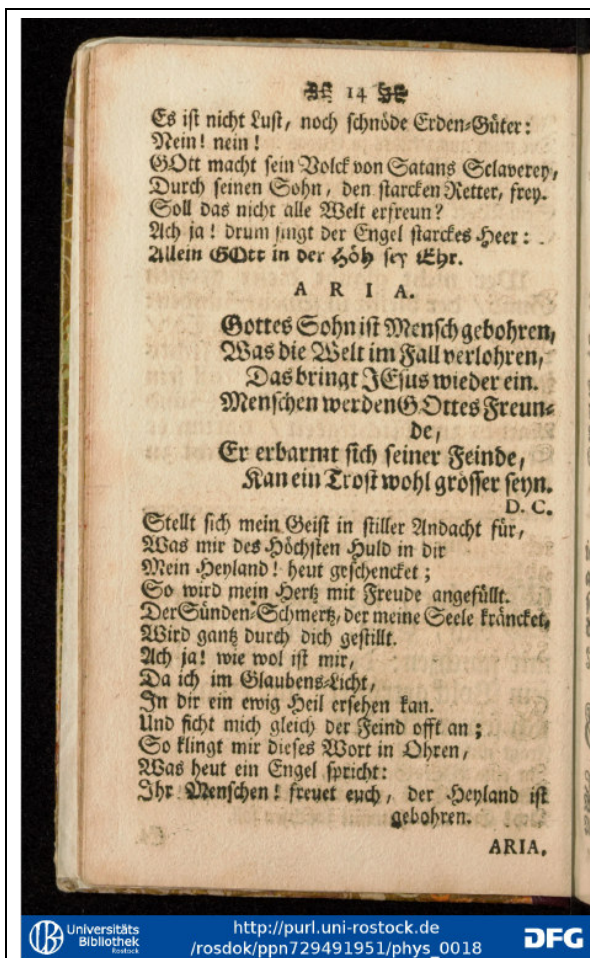 14
Es ist nicht Lust, noch schnöde Erden-Güter:
Nein! nein!
GOtt macht sein Volck von Satans Sclaverey,
Durch seinen Sohn, den starcken Retter, frey.
Soll das nicht alle Welt erfreun?
Ach ja! drum singt der Engel starckes Heer:
Allein GOtt in der Höh sey Ehr.
ARIA.
Gottes Sohn ist Mensch gebohren,
Was die Welt im Fall verlohren,
Das bringt JEsus wieder ein.
Menschen werden GOttes Freun-
de,
Er erbarmt sich seiner Feinde,
Kan ein Trost wohl grösser seyn.
D. C.
Stellt sich mein Geist in stiller Andacht für,
Was mir des Höchsten Huld in dir
Mein Heyland! heut geschencket;
So wird mein Hertz mit Freude angefüllt.
Der Sünden-Schmertz, der meine Seele kräncket,
Wird gantz durch dich gestillt.
Ach ja! wie wol ist mir,
Da ich im Glaubens-Licht,
In dir ein ewig Heil ersehen kan.
Und ficht mich gleich der Feind offt an;
So klingt mir dieses Wort in Ohren,
Was heut ein Engel spricht:
Ihr Menschen! freuet euch, der Heyland ist
gebohren.
ARIA.
Universitäts
Bibliothek
Rostock
http://purl.uni-rostock.de
/rosdok/ppn729491951/phys_0018
DFG